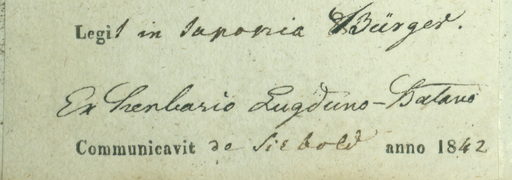 Legit in Japonia Bürger.
Ex herbario Lugduno-Batavo
Communicavit de Siebold anno 1842